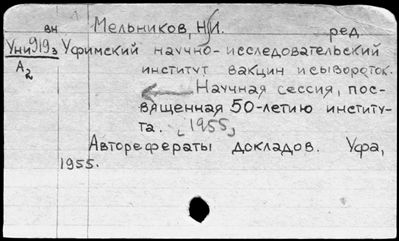 вн Мельников, Н.И. ред
Уни919з Уфимский научно-исследовательский
А2 институт вакцин и сывороток.
Научная сессия, пос-
вященная 50-летию институ-
та. [1955]
Авторефераты докладов. Уфа,
1955.